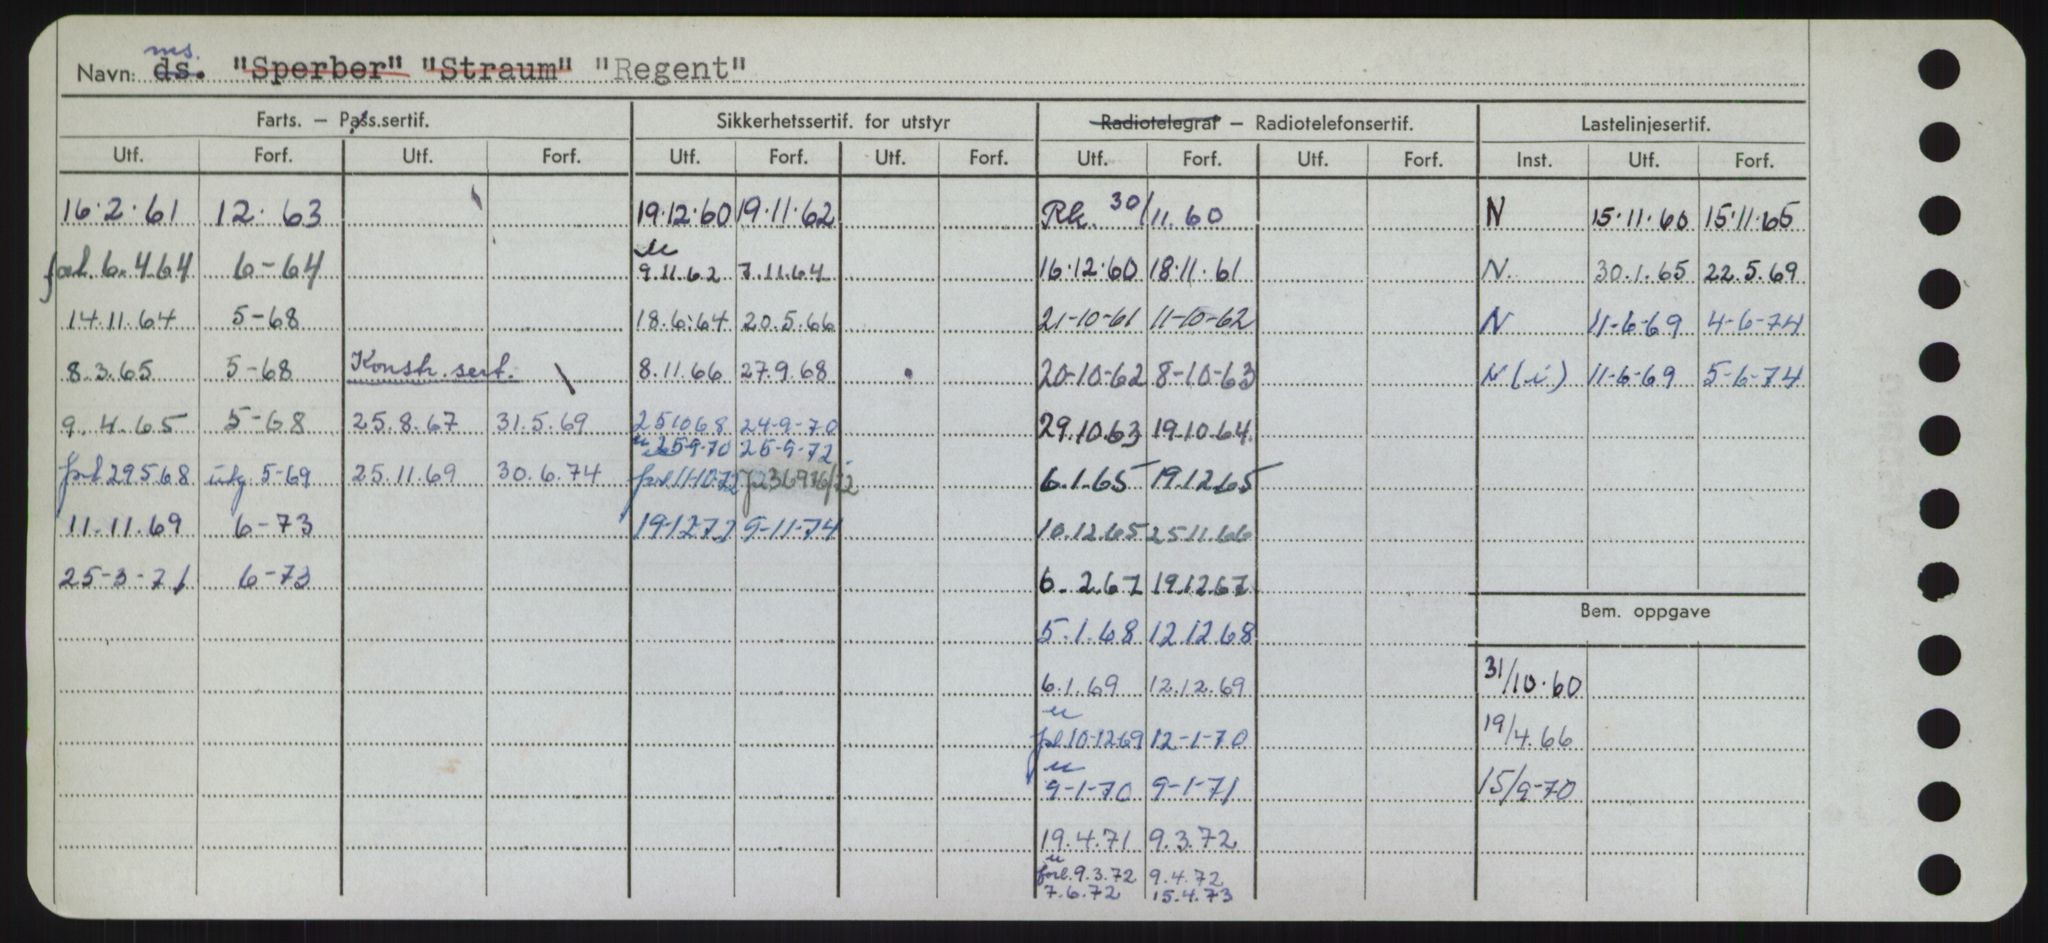 ms.
Navn: ds. "Sperber" "Straum" "Regent"
Farts. — Pass.sertif. Sikkerhetssertif. for utstyr Radiotelegraf — Radiotelefonsertif. Lastelinjesertif.
Utf. Forf. Utf. Forf. Utf. Forf. Utf. Forf. Utf. Forf. Utf. Forf. Inst. Utf. Forf.
16.2.61 12.63 19.12.60 19.11.62 Rk. 30/11.60 N 15.11.60 15.11.65
6.4.64 6-64 u 9.11.62 7.11.64 16.12.60 18.11.61 N. 30.1.65 22.5.69
14.11.64 5-68 18.6.64 20.5.66 21-10-61 11-10-62 N 11-6-69 4-6-74
8.3.65 5-68 Konstr. sert. 8.11.66 27.9.68 20-10-62 8-10-63 N (i) 11-6-69 5-6-74
9.4.65 5-68 25.8.67 31.5.69 25.10.68 24-9-70 29.10.63 19.10.64.
u 25-9-70 25-9-72
29568 utg 5-69 25.11.69 30.6.74 11-10-72 6.1.65 19.12.65
11.11.69 6-73 19-12-72 9-11-74 10.12.65 25.11.66
25-3-71 6-73 6.2.67 19.12.67
Bem. oppgave
5.1.68 12.12.68
6.1.69 12.12.69 31/10.60
u
10-12-69 12-1-70 19/4.66
u
9-1-70 9-1-71 15/9-70
19.4.71 9.3.72
u
forl. 9.3.72 9.4.72
7.6.72 15.4.73